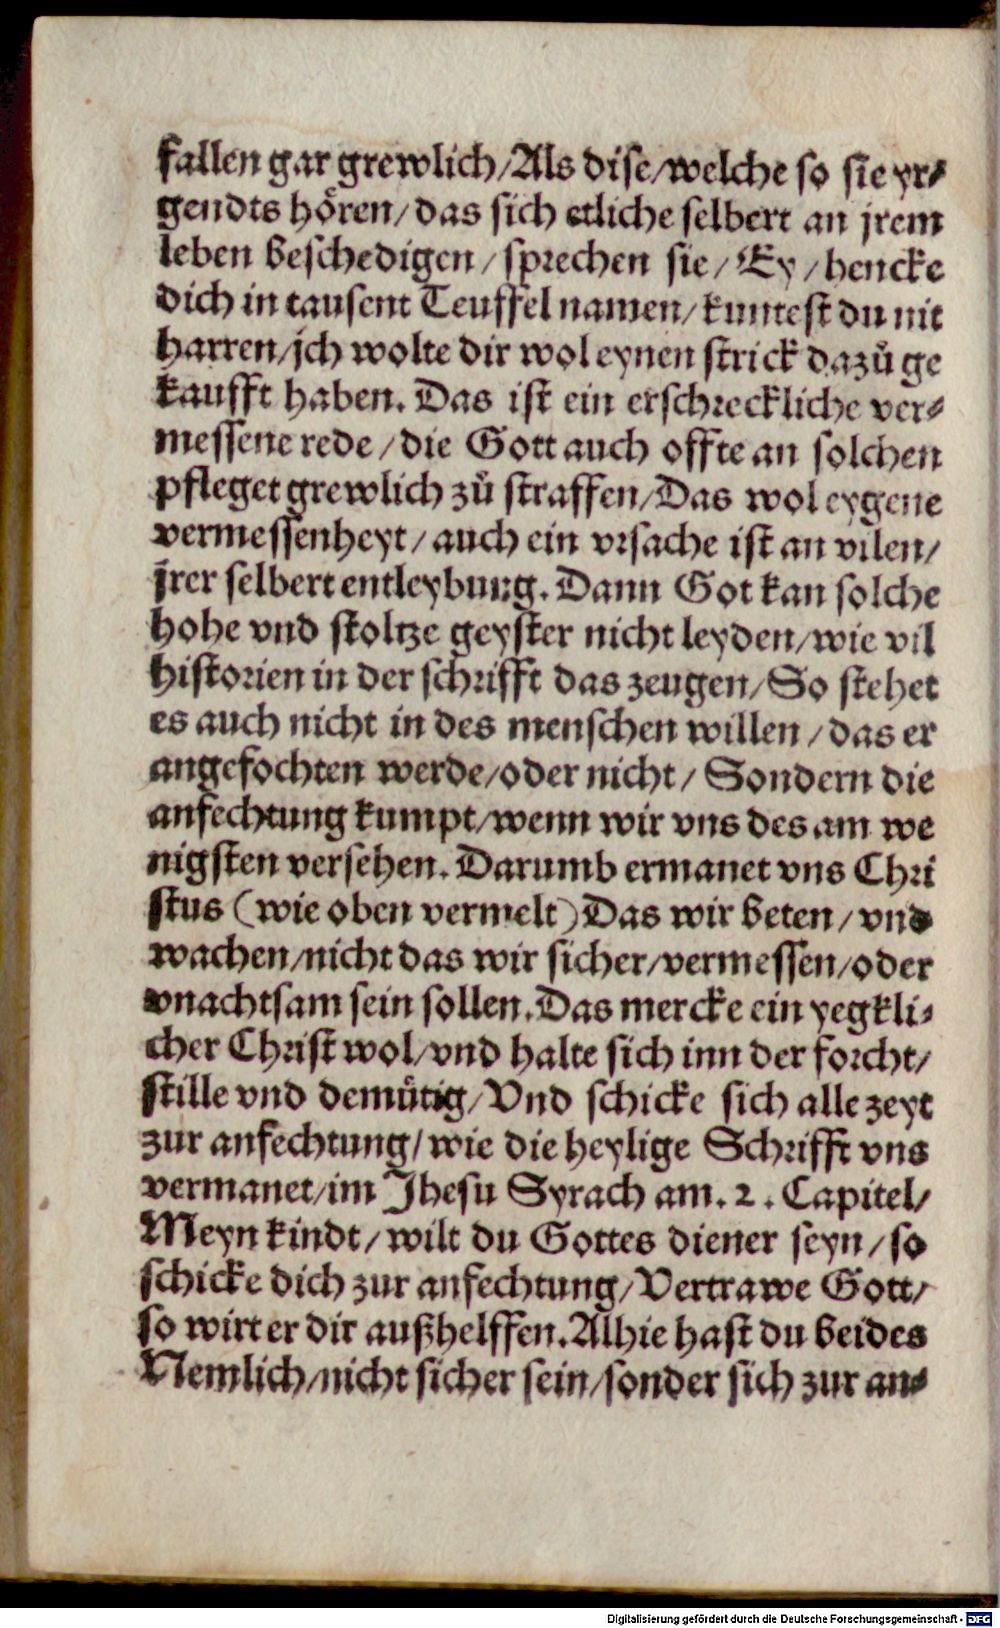 fallen gar grewlich/Als dise/welche so sie yr⸗
gendts hören/das sich etliche selbert an jrem
leben beschedigen/sprechen sie/Ey/hencke
dich in tausent Teuffel namen/kuntest du nit
harren/jch wolte dir wol eynen strick dazů ge
kaufft haben. Das ist ein erschreckliche ver⸗
messene rede/die Gott auch offte an solchen
pfleget grewlich zů straffen/Das wol eygene
vermessenheyt/auch ein vrsache ist an vilen/
jrer selbert entleybung. Dann Got kan solche
hohe vnd stoltze geyster nicht leyden/wie vil
historien in der schrifft das zeugen/So stehet
es auch nicht in des menschen willen/das er
angefochten werde/oder nicht/Sondern die
anfechtung kumpt/wenn wir vns des am we
nigsten versehen. Darumb ermanet vns Chri
stus (wie oben vermelt) Das wir beten/vnd
wachen/nicht das wir sicher/vermessen/oder
vnachtsam sein sollen. Das mercke ein yegkli⸗
cher Christ wol/vnd halte sich inn der forcht/
stille vnd demütig/Vnd schicke sich alle zeyt
zur anfechtung/wie die heylige Schrifft vns
vermanet/im Jhesu Syrach am. 2. Capitel/
Meyn kindt/wilt du Gottes diener seyn/so
schicke dich zur anfechtung/Vertrawe Gott/
so wirt er dir außhelffen. Alhie hast du beides
Nemlich/nicht sicher sein/sonder sich zur an⸗
Digitalisierung gefördert durch die Deutsche Forschungsgemeinschaft - DFG